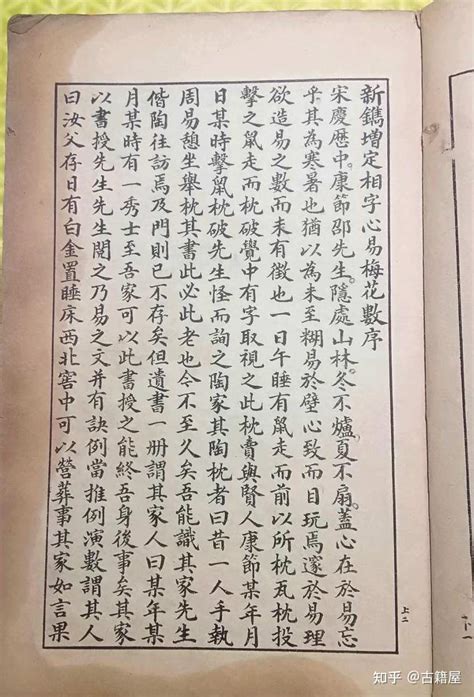 新鐫增定相字心易梅花數序
宋慶歷中康節邵先生隱處山林冬不爐夏不扇蓋心在於易忘
乎其為寒暑也猶以為未至糊易於壁心致而目玩焉邃於易理
欲造易之數而未有徵也一日午睡有鼠走而前以所枕瓦枕投
擊之鼠走而枕破覺中有字取視之此枕賣與賢人康節某年月
日某時擊鼠枕破先生怪而詢之陶家其陶枕者曰昔一人手執
周易憩坐舉枕其書此必此老也今不至久矣吾能識其家先生
偕陶往訪焉及門則已不存矣但遺書一册謂其家人曰某年某
月某時有一秀士至吾家可以此書授之能終吾身後事矣其家
以書授先生先生閱之乃易之文并有訣例當推例演數謂其人
曰汝父存日有白金置睡床西北窖中可以營葬事其家如言果
上二
知乎 @古籍屋